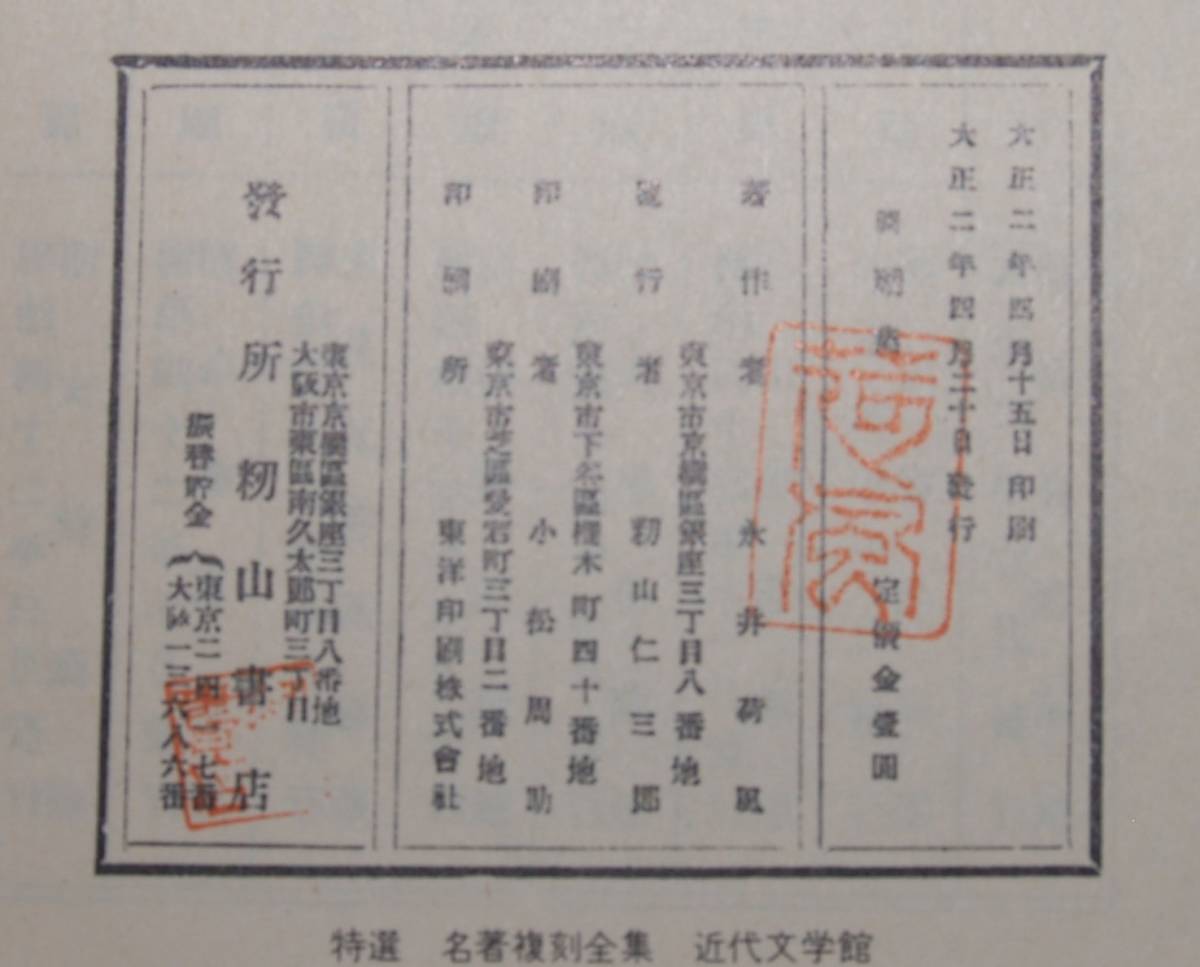 大正二年四月十五日印刷
大正二年四月二十日發行
珊瑚集
定價金壹圓
著作者 永井荷風
東京市京橋區銀座三丁目八番地
發行者 籾山仁三郎
東京市下谷區 木町四十番地
印刷者 小松周助
東京市芝區愛宕町三丁目二番地
印刷所 東洋印刷株式會社
東京京橋區銀座三丁目八番地
大阪市東區南久太郎町三丁目
發行所 籾山書店
振替貯金
東京二四一一七番
大阪一三六八六番
特選 名著複刻全集 近代文学館